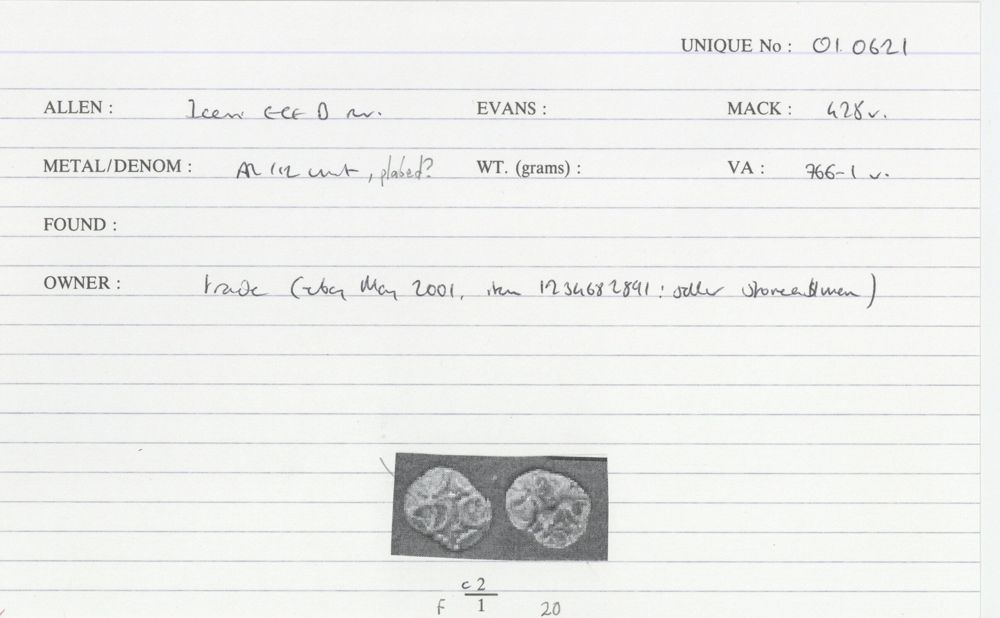 UNIQUE No : 01.0621
ALLEN : Iceni ECE B EVANS : MACK : 428 v.
METAL/DENOM : AR 1/2 unit, plated? WT. (grams) : VA : 766-1 v.
FOUND :
OWNER : trade (eBay May 2001, item : seller )
c 2
f 1 20